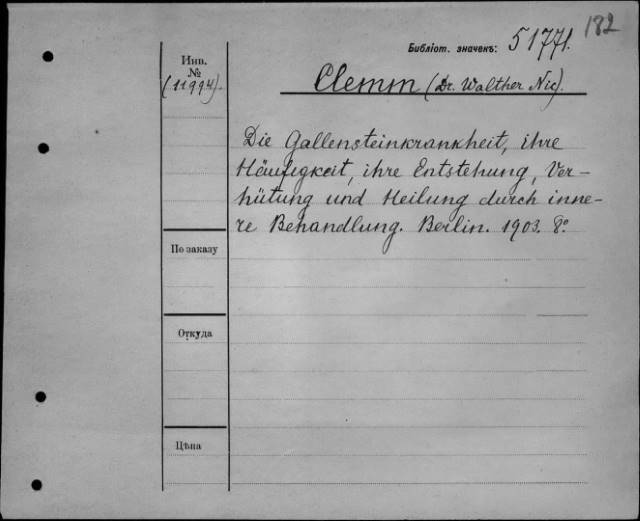 182
Библіот. значекъ: 51771.
Инв.
№
(11994).
Clemm (Dr. Walther Nic).
Die Gallensteinkrankheit, ihre
Häufigkeit, ihre Entstehung, Ver-
hütung und Heilung durch inne-
re Behandlung. Berlin. 1903. 8º.
По заказу
Откуда
Цѣна